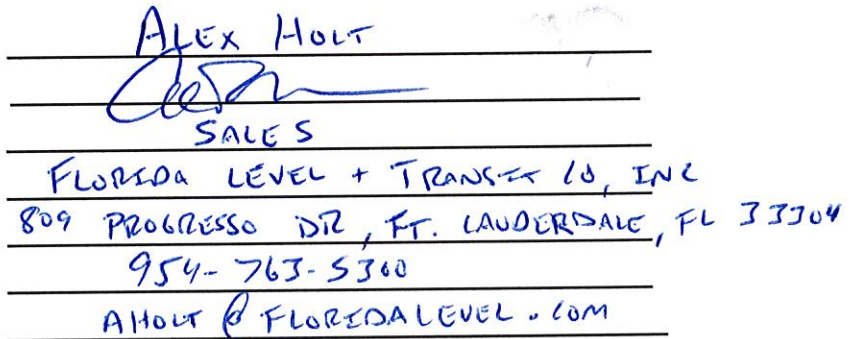 ALEX HOLT
SALES
FLORIDA LEVEL + TRANSIT CO, INC
809 PROGRESSO DR, FT. LAUDERDALE, FL 33304
954-763-5300
AHOLT@FLORIDALEVEL.COM